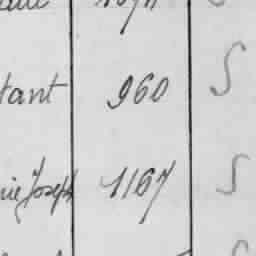 tant 960 S
nie Joseph 1167 S